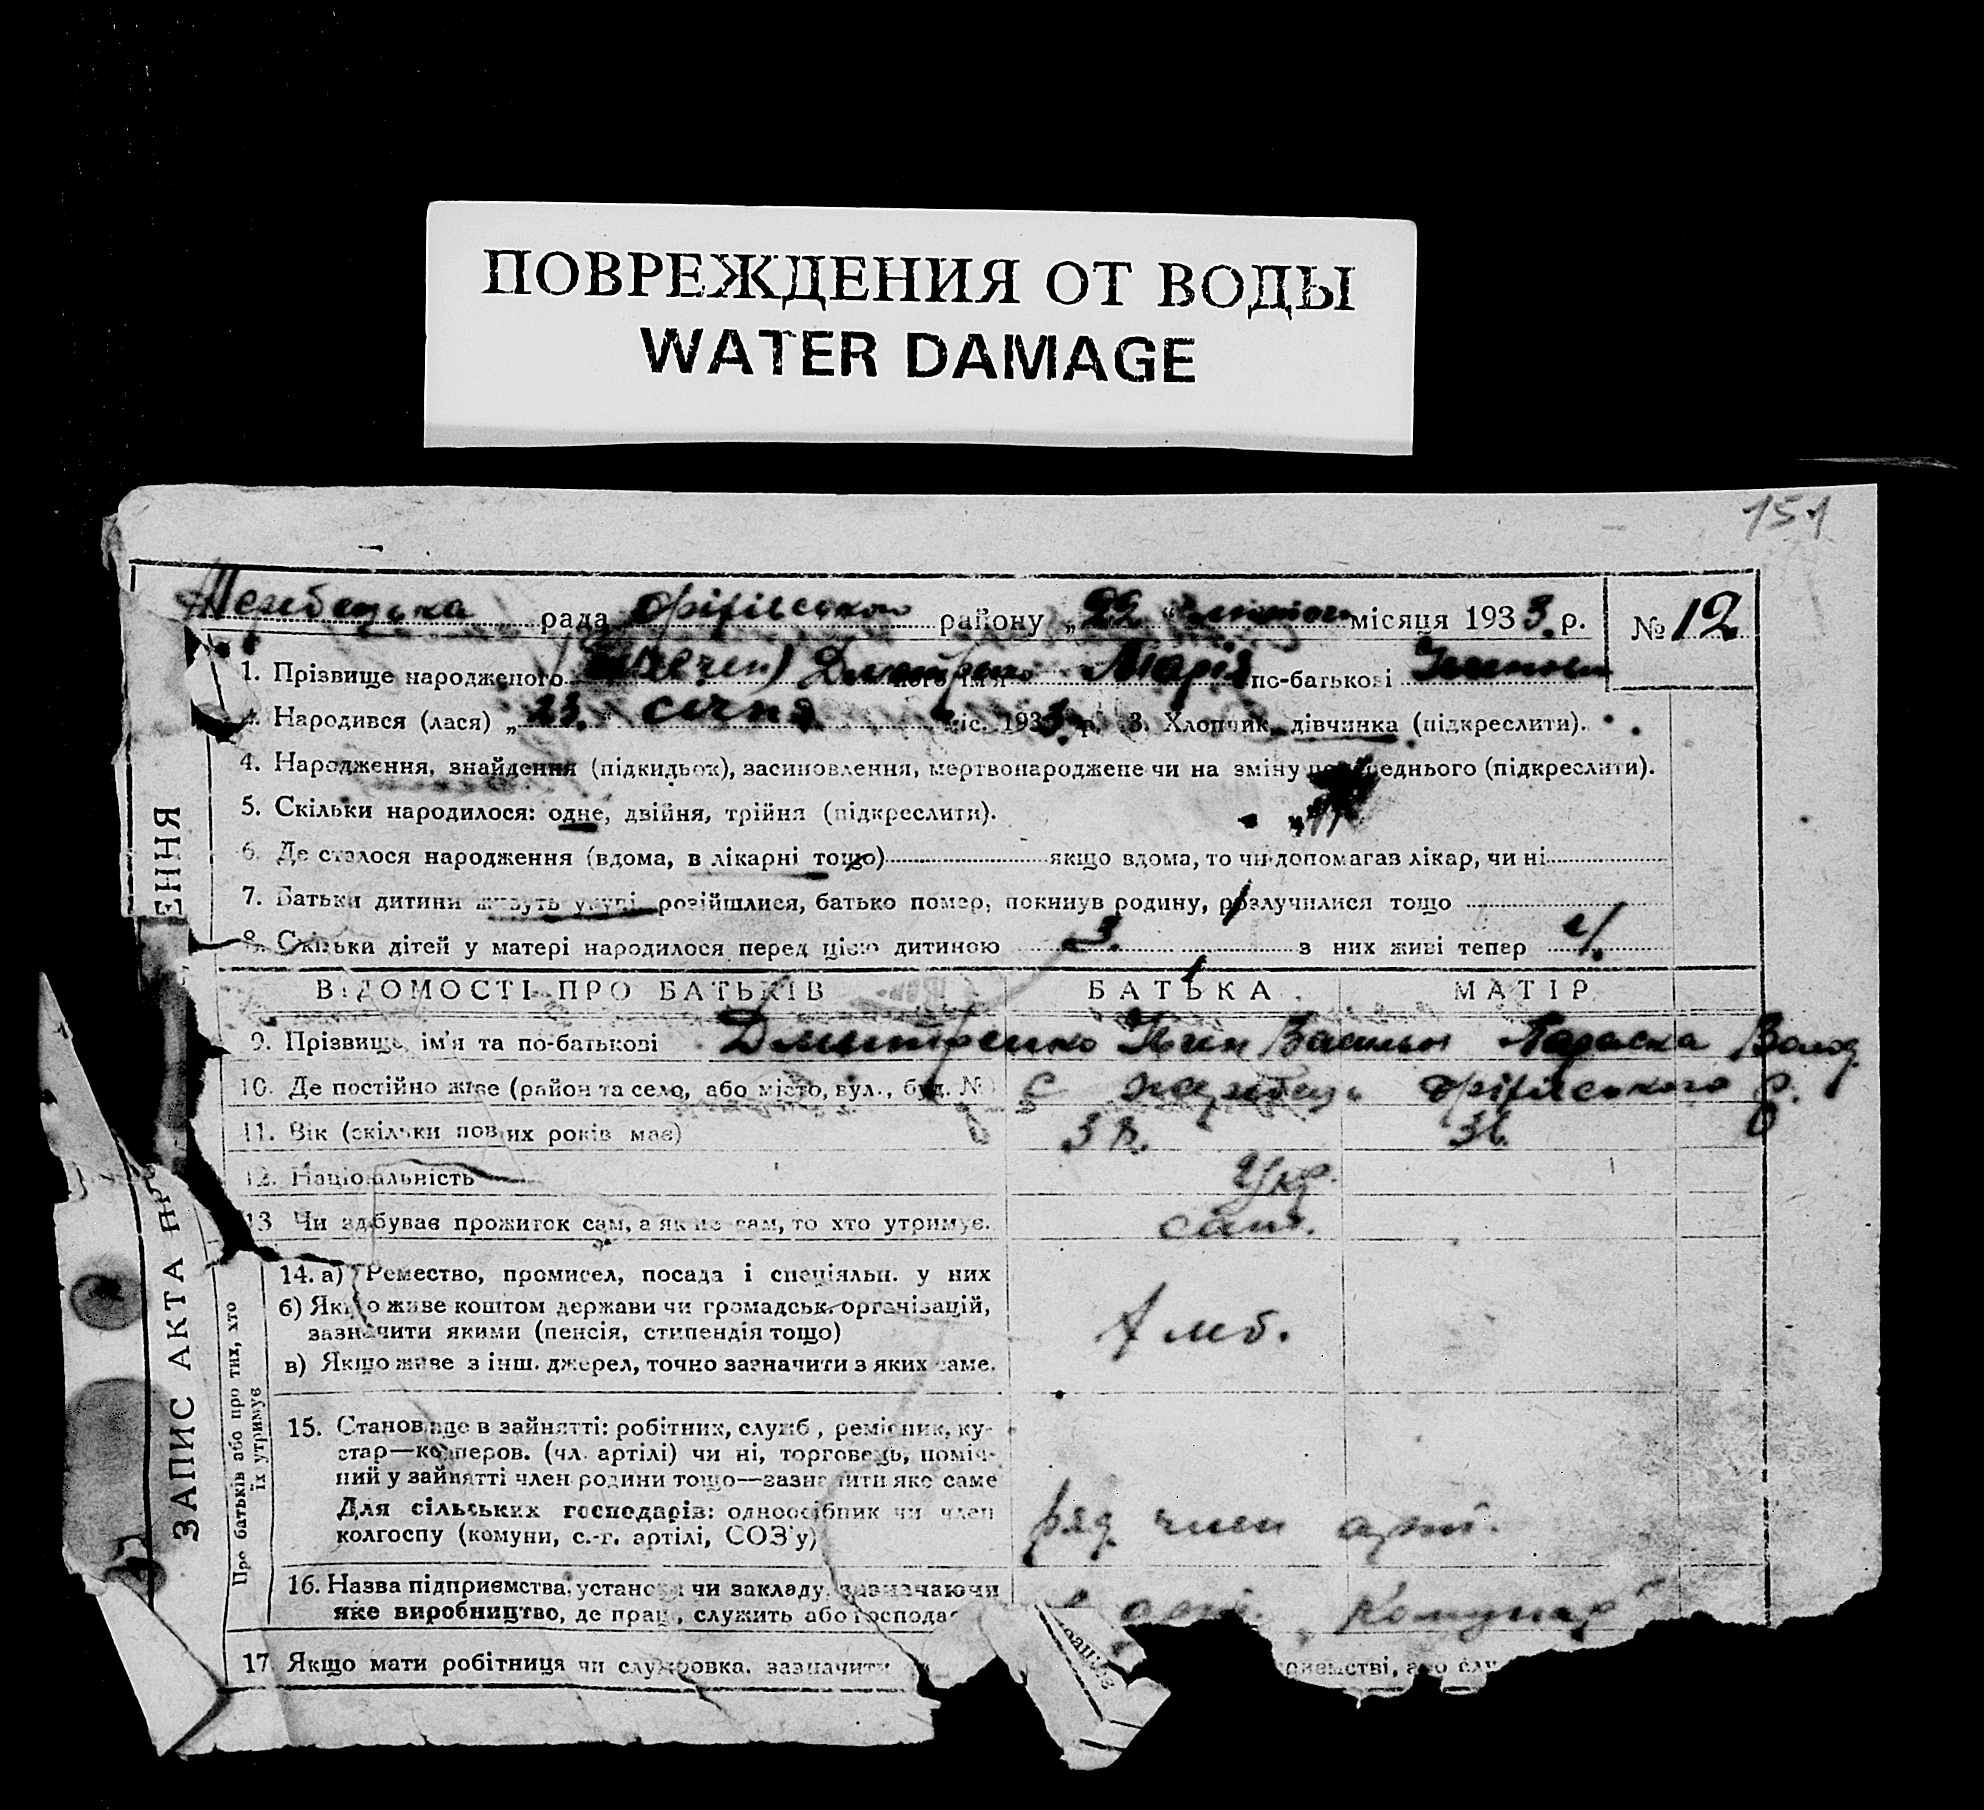 ПОВРЕЖДЕНИЯ ОТ ВОДЫ
WATER DAMAGE
151
Жеребецька рада Оріхівського району „22“ місяця 1933 р. № 12
1. Прізвище народженого Дмитренко Марія по-батькові Іванівн
Народився (лася) „23. січня міс. 1933 р. 3. Хлопчик, дівчинка (підкреслити).
4. Народження, знайдення (підкидьок), засиновлення, мертвонароджене чи на зміну попереднього (підкреслити).
5. Скільки народилося: одне, двійня, трійня (підкреслити).
6. Де сталося народження (вдома, в лікарні тощо) якщо вдома, то чи допомагав лікар, чи ні
7. Батьки дитини живуть укупі, розійшлися, батько помер, покинув родину, розлучилися тощо
8. Скільки дітей у матері народилося перед цією дитиною 3. з них живі тепер
ВІДОМОСТІ ПРО БАТЬКІВ БАТЬКА МАТІР
9. Прізвище, ім'я та по-батькові Дмитренко Іван Васильов Параска Волод
10. Де постійно живе (район та село, або місто, вул., буд. № с Жеребець Оріхівського р.
11. Вік (скільки повних років має)
12. Національність Укр.
13 Чи здобував прожиток сам, а як не сам, то хто утримує. сам.
14. а) Ремество, промисел, посада і спеціяльн. у них
б) Якщо живе коштом держави чи громадськ. організацій,
зазначити якими (пенсія, стипендія тощо)
в) Якщо живе з інш. джерел, точно зазначити з яких саме.
15. Становище в зайнятті: робітник, служб, ремісник, ку-
стар—кооперов. (чл. артілі) чи ні, торговець, поміч-
ний у зайнятті член родини тощо—зазначити яке саме
Для сільських господарів: одноосібник чи член
колгоспу (комуни, с.-г. артілі, СОЗ'у)
ряд. член арт.
16. Назва підприємства, установи чи закладу, зазначаючи
яке виробництво, де прац, служить або господа
арт. „Комунар“
17 Якщо мати робітниця чи службовка, зазначити
ЕННЯ
ЗАПИС АКТА ПР
Про батьків або про тих, хто
їх утримує